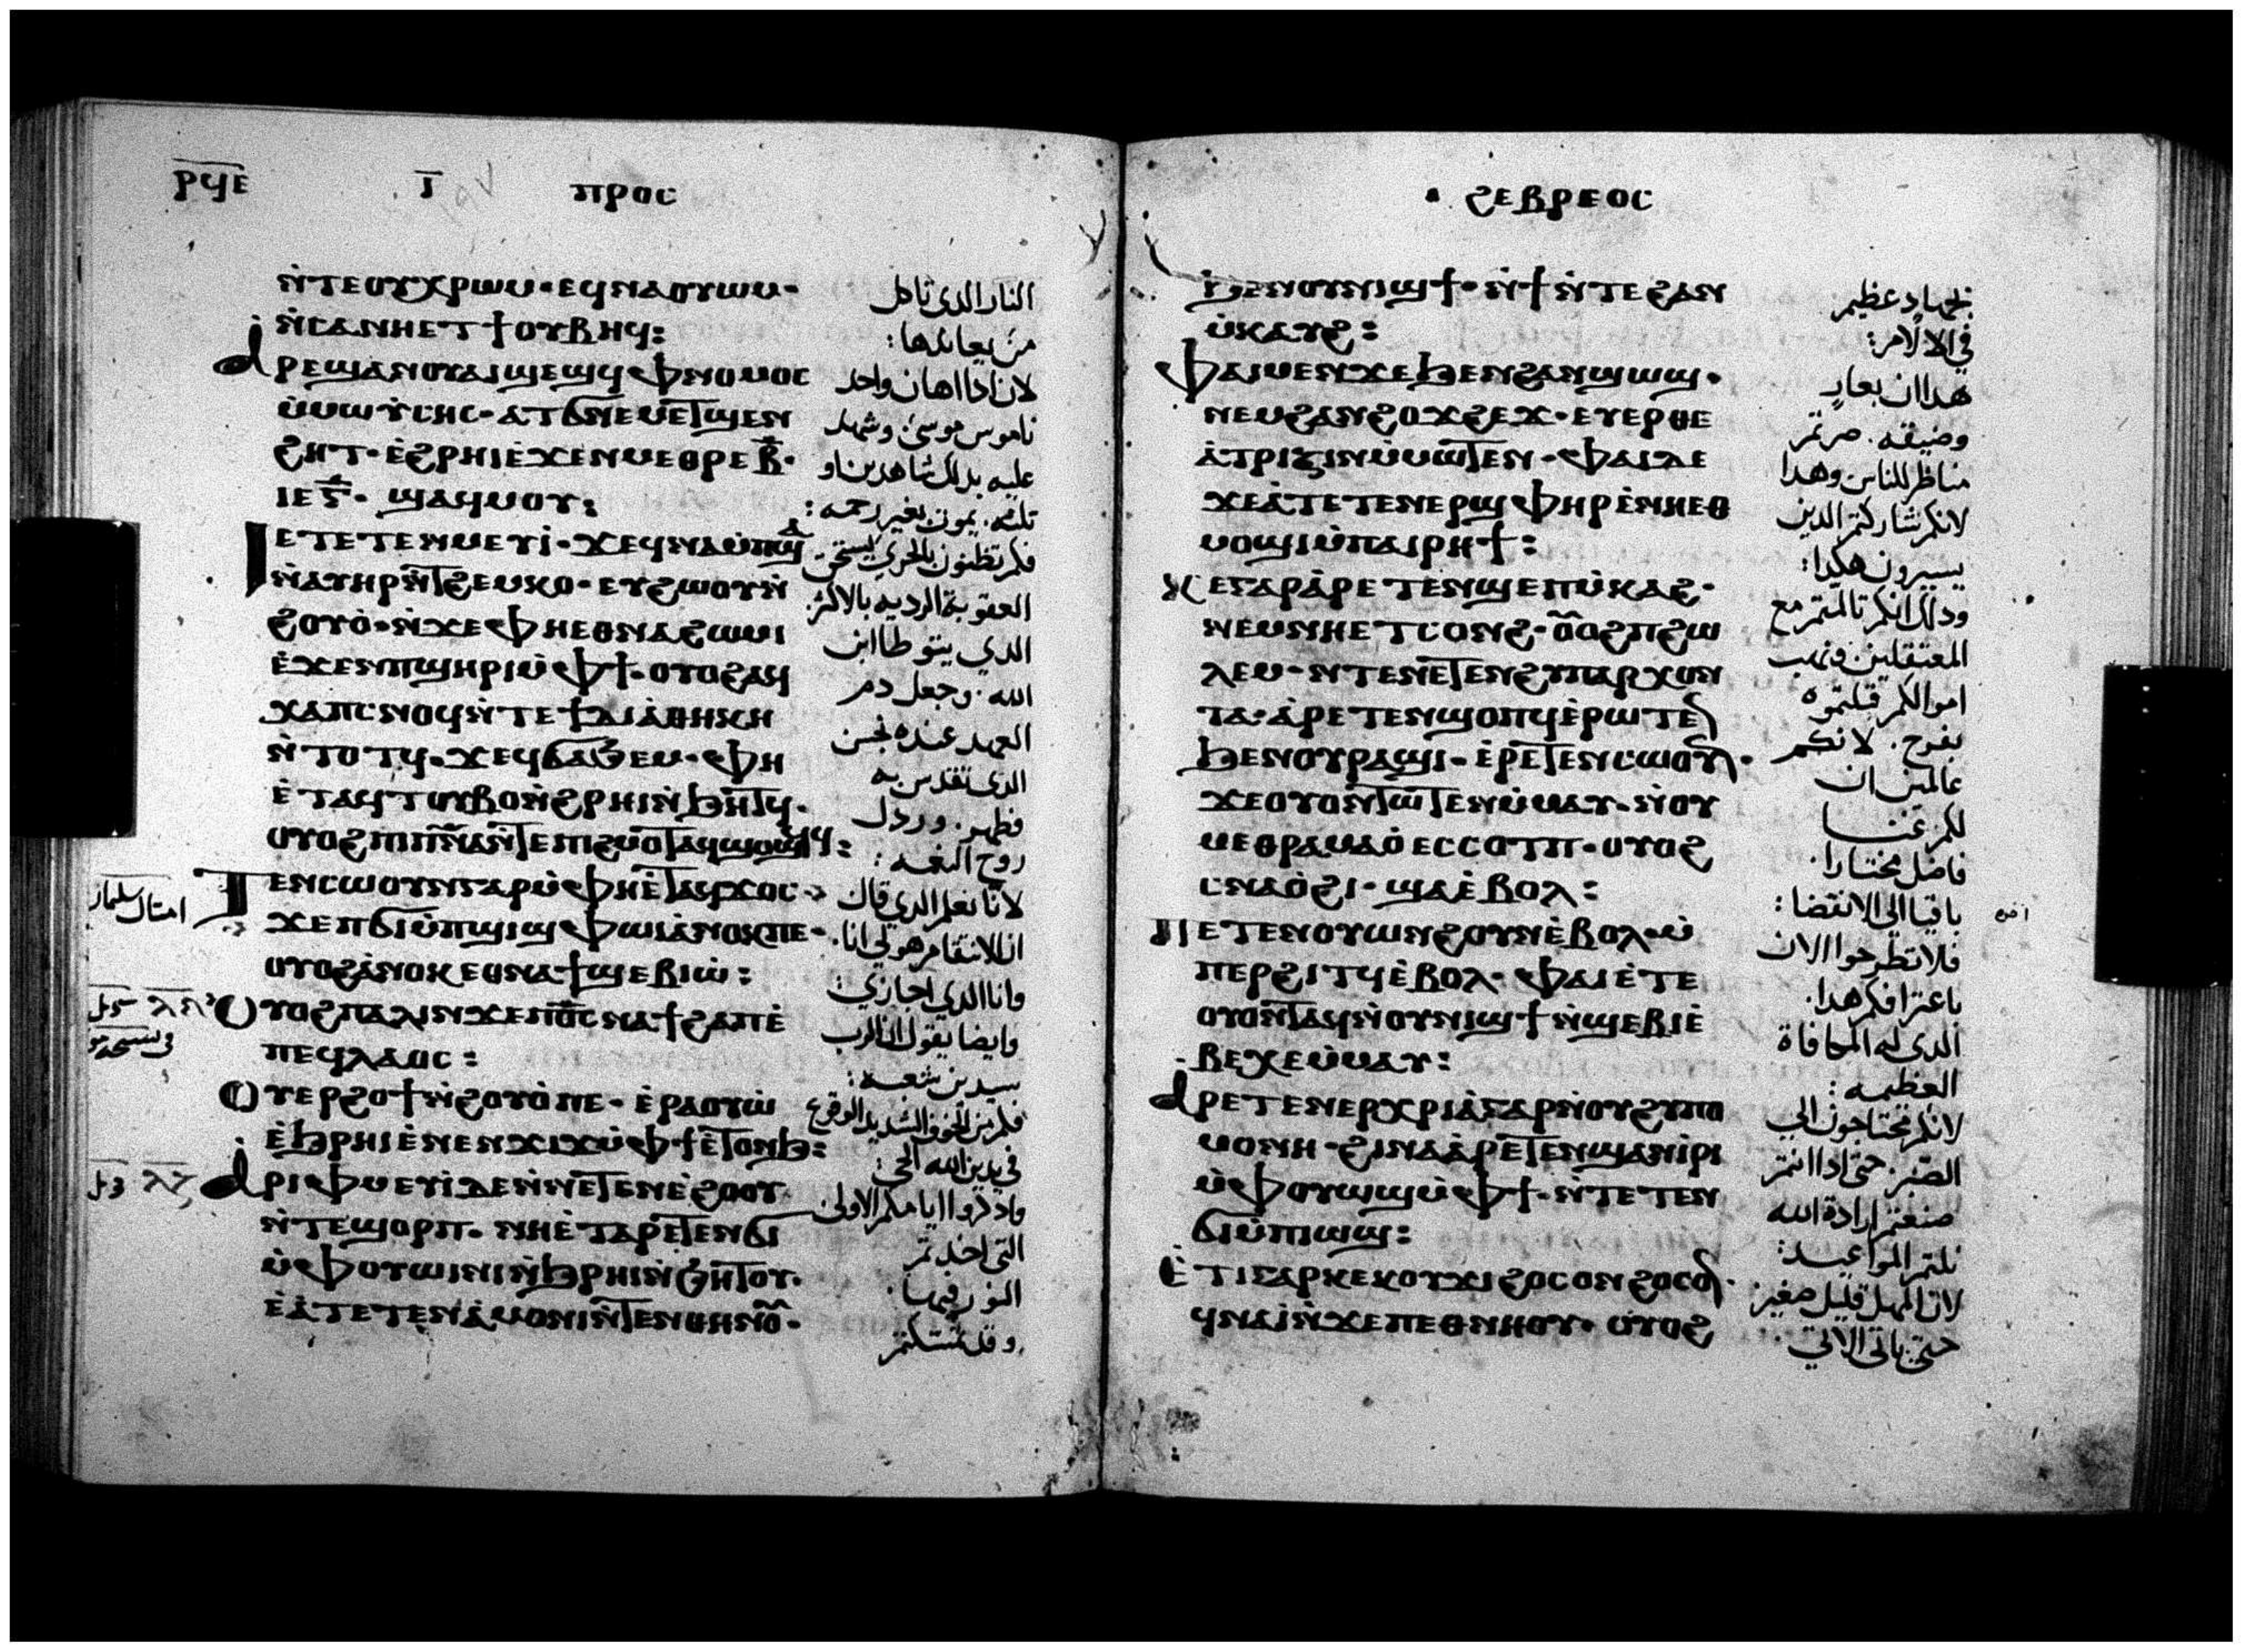 ⲣϥⲉ̀ ⲓ̅ ⲡⲣⲟⲥ
ⲛ̀ⲧⲉⲟⲩⲭⲣⲱⲙ· ⲉϥⲛⲁⲟⲩⲱⲙ·
ⲛ̀ⲥⲁⲛⲏⲉⲧϯⲟⲩⲃⲏϥ:
ⲁⲣⲉϣⲁⲛⲟⲩⲁⲓϣⲉϣϥ ⲫⲛⲟⲙⲟⲥ
ⲙ̀ⲙⲱⲩ̀ⲥⲏⲥ· ⲁⲧϭⲛⲉⲙⲉⲧϣⲉⲛ
ϩⲏⲧ· ⲉ̀ϩⲣⲏⲓⲉ̀ϫⲉⲛⲙⲉⲑⲣⲉⲃ̅·
ⲓⲉⲅ̅· ϣⲁϥⲙⲟⲩ:
ⲓⲉⲧⲉⲧⲉⲛⲙⲉⲩⲓ̀· ϫⲉϥⲛⲁⲙ̀ⲡϣⲁ
ⲛ̀ⲁⲩⲏⲣⲛ̀ⲧϩⲉⲙⲕⲟ· ⲉⲩϩⲱⲟⲩⲛ̀
ϩⲟⲩⲟ̀· ⲛ̀ϫⲉⲫⲏⲉⲑⲛⲁϩⲱⲙⲓ
ⲉ̀ϫⲉⲛⲡϣⲏⲣⲓⲙ̀ⲫϯ· ⲟⲩⲟϩⲁϥ
ⲭⲁⲡⲥⲛⲟϥⲛ̀ⲧⲉϯⲇⲓⲁ̀ⲑⲏⲕⲏ
ⲛ̀ⲧⲟⲧϥ· ϫⲉϥϭⲁϧⲉⲙ· ⲫⲏ
ⲉ̀ⲧⲁϥⲧⲟⲩⲃⲟⲛ̀ϩⲣⲏⲓⲛ̀ϧⲏⲧϥ·
ⲟⲩⲟϩⲡⲓⲡ̅ⲛ̅ⲁ̅ⲛ̀ⲧⲉⲡⲓϩⲙⲟⲧⲁϥϣⲟϣϥ:
ⲧⲉⲛⲥⲱⲟⲩⲛⲅⲁⲣⲙ̀ⲫⲏⲉ̀ⲧⲁϥϫⲟⲥ·
ϫⲉⲡϭⲓⲙ̀ⲡϣⲓϣ ⲫⲱⲓⲁ̀ⲛⲟⲕⲡⲉ·
ⲟⲩⲟϩⲁ̀ⲛⲟⲕⲉⲑⲛⲁϯϣⲉⲃⲓⲱ̀:
ⲟⲩⲟϩⲡⲁⲗⲓⲛϫⲉⲡⲟ̅ⲥ̅ⲛⲁϯϩⲁⲡⲉ̀
ⲡⲉϥⲗⲁⲟⲥ:
ⲟⲩⲉⲣϩⲟϯⲛ̀ϩⲟⲩⲟ̀ⲡⲉ· ⲉ̀ⲣⲁⲟⲩⲱ̀
ⲉ̀ϧⲣⲏⲓⲉ̀ⲛⲉⲛϫⲓϫⲙ̀ⲫϯⲉ̀ⲧⲟⲛϧ:
ⲁⲣⲓⲫⲙⲉⲩⲓ̀ⲇⲉⲛ̀ⲛⲉⲧⲉⲛⲉ̀ϩⲟⲟⲩ
ⲛ̀ⲧⲉϣⲟⲣⲡ· ⲛⲏⲉ̀ⲧⲁⲣⲉⲧⲉⲛϭⲓ
ⲙ̀ⲫⲟⲩⲱⲓⲛⲓⲛ̀ϧⲣⲏⲓⲛ̀ϧⲏⲧⲟⲩ·
ⲉ̀ⲁ̀ⲧⲉⲧⲉⲛⲁ̀ⲙⲟⲛⲓⲛ̀ⲧⲉⲛⲑⲏⲛⲟ̅·
النار الدي تاكل
من يعاندها:
لان ادا اهان واحد
ناموس موسى وشهد
عليه بدلك شاهدين او
تلته. يموت بغير رحمه:
فكم تظنون بالحري يستحق
العقوبة الرديه بالاكثر.
الدي يتوطا ابن
الله. وجعل دم
العهد عنده نجس
الدى تقدس به
فطهر. وردل
روح النعمه:
لاننا نعلم الدي قال
ان للانتقام هو لي انا.
وانا الدي اجازي:
وايضا يقول ان الرب
سيدين شعبه:
فكم من الخوف الشديد الوقوع
في يدين الله الحي:
وادكروا ايامكم الاولى
التى اخدتم
النور فيها.
وقد تمسكتم
امتال سليمان
ϩⲉⲃⲣⲉⲟⲥ
ϧⲉⲛⲟⲩⲛⲓϣϯ· ⲛ̀ϯⲛ̀ⲧⲉϩⲁⲛ
ⲙ̀ⲕⲁⲩϩ:
ⲫⲁⲓⲙⲉⲛϫⲉϧⲉⲛϩⲁⲛϣⲱϣ·
ⲛⲉⲙϩⲁⲛϩⲟϫϩⲉϫ· ⲉⲩⲉⲣⲑⲉ
ⲁ̀ⲧⲣⲓⲍⲓⲛⲙ̀ⲙⲱⲧⲉⲛ· ⲫⲁⲓⲇⲉ
ϫⲉⲁ̀ⲧⲉⲧⲉⲛⲉⲣϣⲫⲏⲣⲉ̀ⲛⲏⲉⲑ
ⲙⲟϣⲓⲙ̀ⲡⲁⲓⲣⲏϯ:
ⲕⲉⲅⲁⲣⲁ̀ⲣⲉⲧⲉⲛϣⲉⲡⲙ̀ⲕⲁϩ·
ⲛⲉⲙⲛⲏⲉⲧⲥⲟⲛϩ· ⲟ̅ⲟϩⲡϩⲱ
ⲗⲉⲙ· ⲛⲧⲉⲛⲉⲧⲉⲛϩⲩⲡⲁⲣⲭⲟⲛ
ⲧⲁ· ⲁ̀ⲣⲉⲧⲉⲛϣⲟⲡϥⲉ̀ⲣⲱⲧⲉⲛ
ϧⲉⲛⲟⲩⲣⲁϣⲓ· ⲉ̀ⲣⲉⲧⲉⲛⲥⲱⲟⲩⲛ·
ϫⲉⲟⲩⲟⲛⲧⲱⲧⲉⲛⲙ̀ⲙⲁⲩ· ⲛ̀ⲟⲩ
ⲙⲉⲑⲣⲁⲙⲁⲟ̀ⲉⲥⲥⲟⲧⲡ· ⲟⲩⲟϩ
ⲥⲛⲁⲟ̀ϩⲓ· ϣⲁⲉ̀ⲃⲟⲗ:
ⲙⲡⲉⲧⲉⲛⲟⲩⲱⲛϩⲟⲩⲛⲉ̀ⲃⲟⲗ· ⲙ̀
ⲡⲉⲣϩⲓⲧϥⲉ̀ⲃⲟⲗ· ⲫⲁⲓⲉ̀ⲧⲉ
ⲟⲩⲟⲛⲧⲁϥⲛ̀ⲟⲩⲛⲓϣϯⲛ̀ϣⲉⲃⲓⲉ̀
ⲃⲉⲭⲉⲙ̀ⲙⲁⲩ:
ⲁⲣⲉⲧⲉⲛⲉⲣⲭⲣⲓⲁ̀ⲅⲁⲣⲛ̀ⲟⲩϩⲩⲡⲟ
ⲙⲟⲛⲏ· ϩⲓⲛⲁⲁ̀ⲣⲉⲧⲉⲛϣⲁⲛⲓ̀ⲣⲓ
ⲙ̀ⲫⲟⲩⲱϣⲙ̀ⲫϯ· ⲛ̀ⲧⲉⲧⲉⲛ
ϭⲓⲙ̀ⲡⲓⲱϣ:
ⲉ̀ⲧⲓⲅⲁⲣⲕⲉⲕⲟⲩϫⲓϩⲟⲥⲟⲛϩⲟⲥⲟⲛ·
ϥⲛⲁⲓ̀ⲛ̀ϫⲉⲡⲉⲑⲛⲏⲟⲩ· ⲟⲩⲟϩ
بجهاد عظيم
في الالام:
هدا ان بعار
وضيقه. صرتم
مناظر للناس وهدا
لانكم شاركتم الدين
يسيرون هكدا:
ودلك انكم تالمتم مع
المعتقلين ونهب
اموالكم قبلتموه
بفرح. لانكم
عالمين ان
لكم غنا
فاضل مختارا.
باقيا الى الانقضا:
فلا تطرحوا الان
باعترافكم هدا.
الدى له المكافاة
العظيمه:
لانكم تحتاجون الي
الصبر. حتى ادا انتم
صنعتم ارادة الله
نلتم المواعيد:
لان المهل قليل صغير
حتى ياتى الاتي.